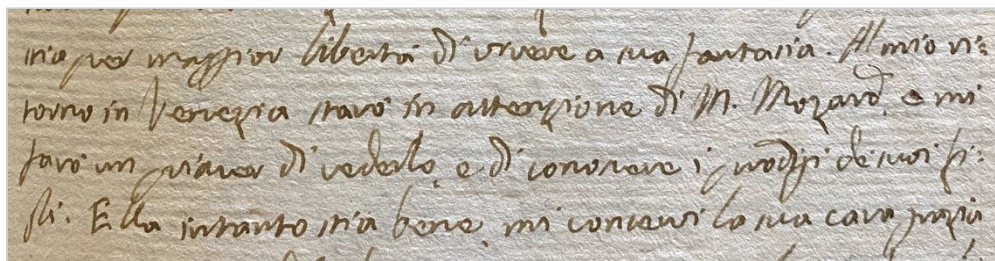 sia per maggior libertà di vivere a sua fantasia. Al mio ri=
torno in Venezia starò in attenzione di M. Mozard, e mi
farò un piacer di vederlo, e di conoscere i prodigi de suoi fi:
gli. Ella intanto stia bene, mi conservi la sua cara grazia